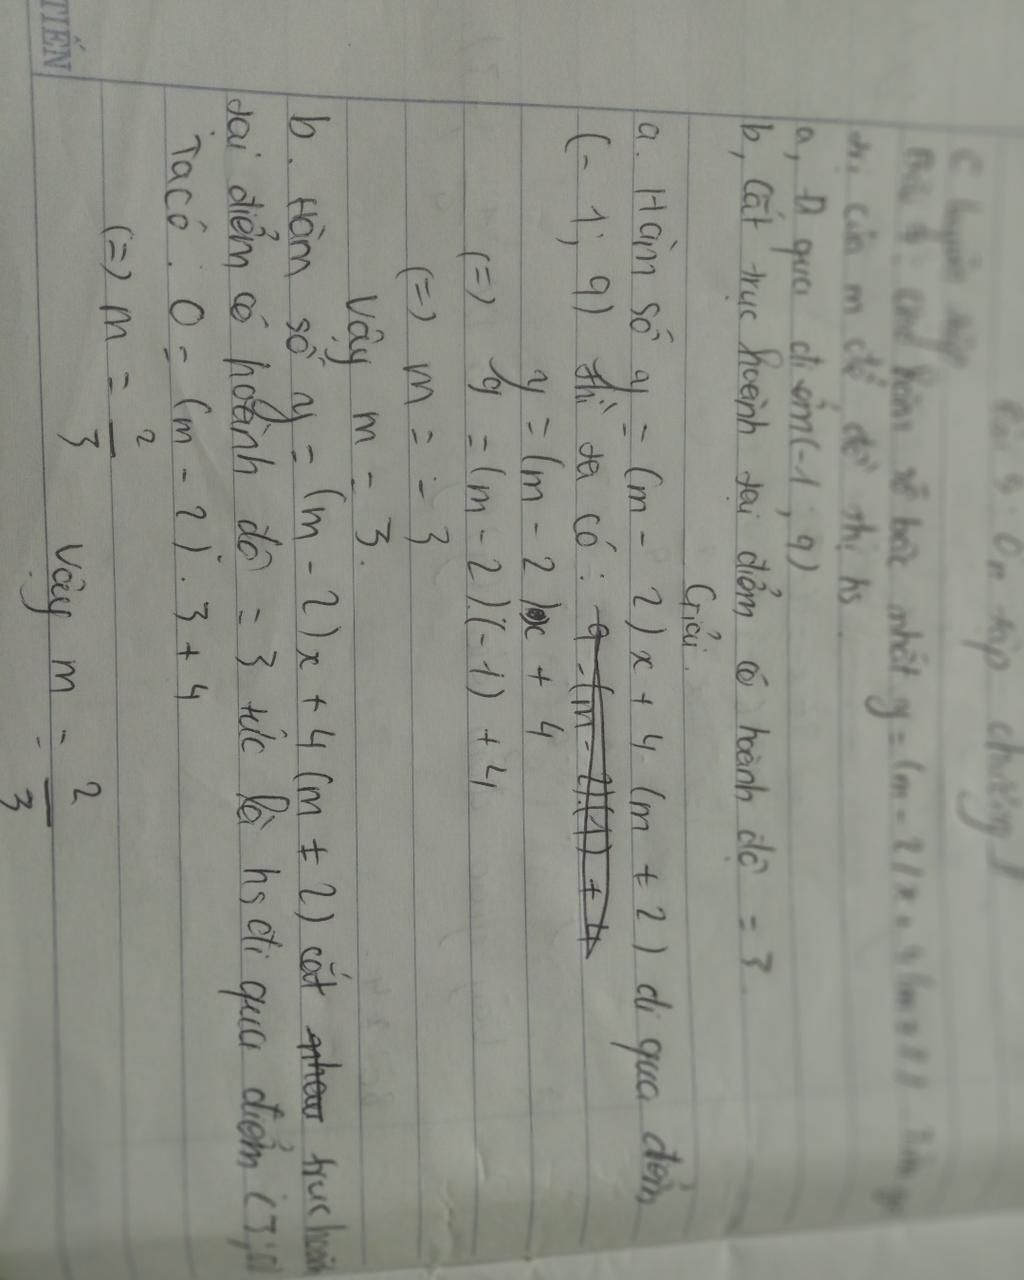 Bài 4. Ôn tập chương II
C luyện tập
Bài 4: Cho hàm số bậc nhất y = (m - 2)x + 4 (m ≠ 2). Tìm
trị của m để đồ thị hs
a, Đi qua điểm (-1; 9)
b, Cắt trục hoành tại điểm có hoành độ = 3.
Giải.
a. Hàm số y = (m - 2)x + 4 (m ≠ 2) đi qua điểm
(- 1; 9) thì ta có:
y = (m - 2)x + 4
(=) 9 = (m - 2).(-1) + 4
(=) m = - 3
Vậy m = 3.
b. Hàm số y = (m - 2)x + 4 (m ≠ 2) cắt trục hoành
tại điểm có hoành độ = 3 tức là hs đi qua điểm (3; 0)
Ta có: 0 = (m - 2). 3 + 4
(=) m = 2/3
Vậy m = 2/3
TIẾN